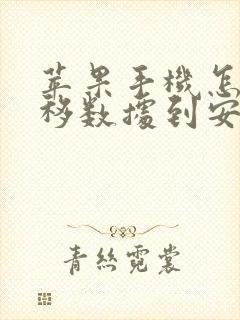 苹果手機怎
移数據到安
青丝霓裳